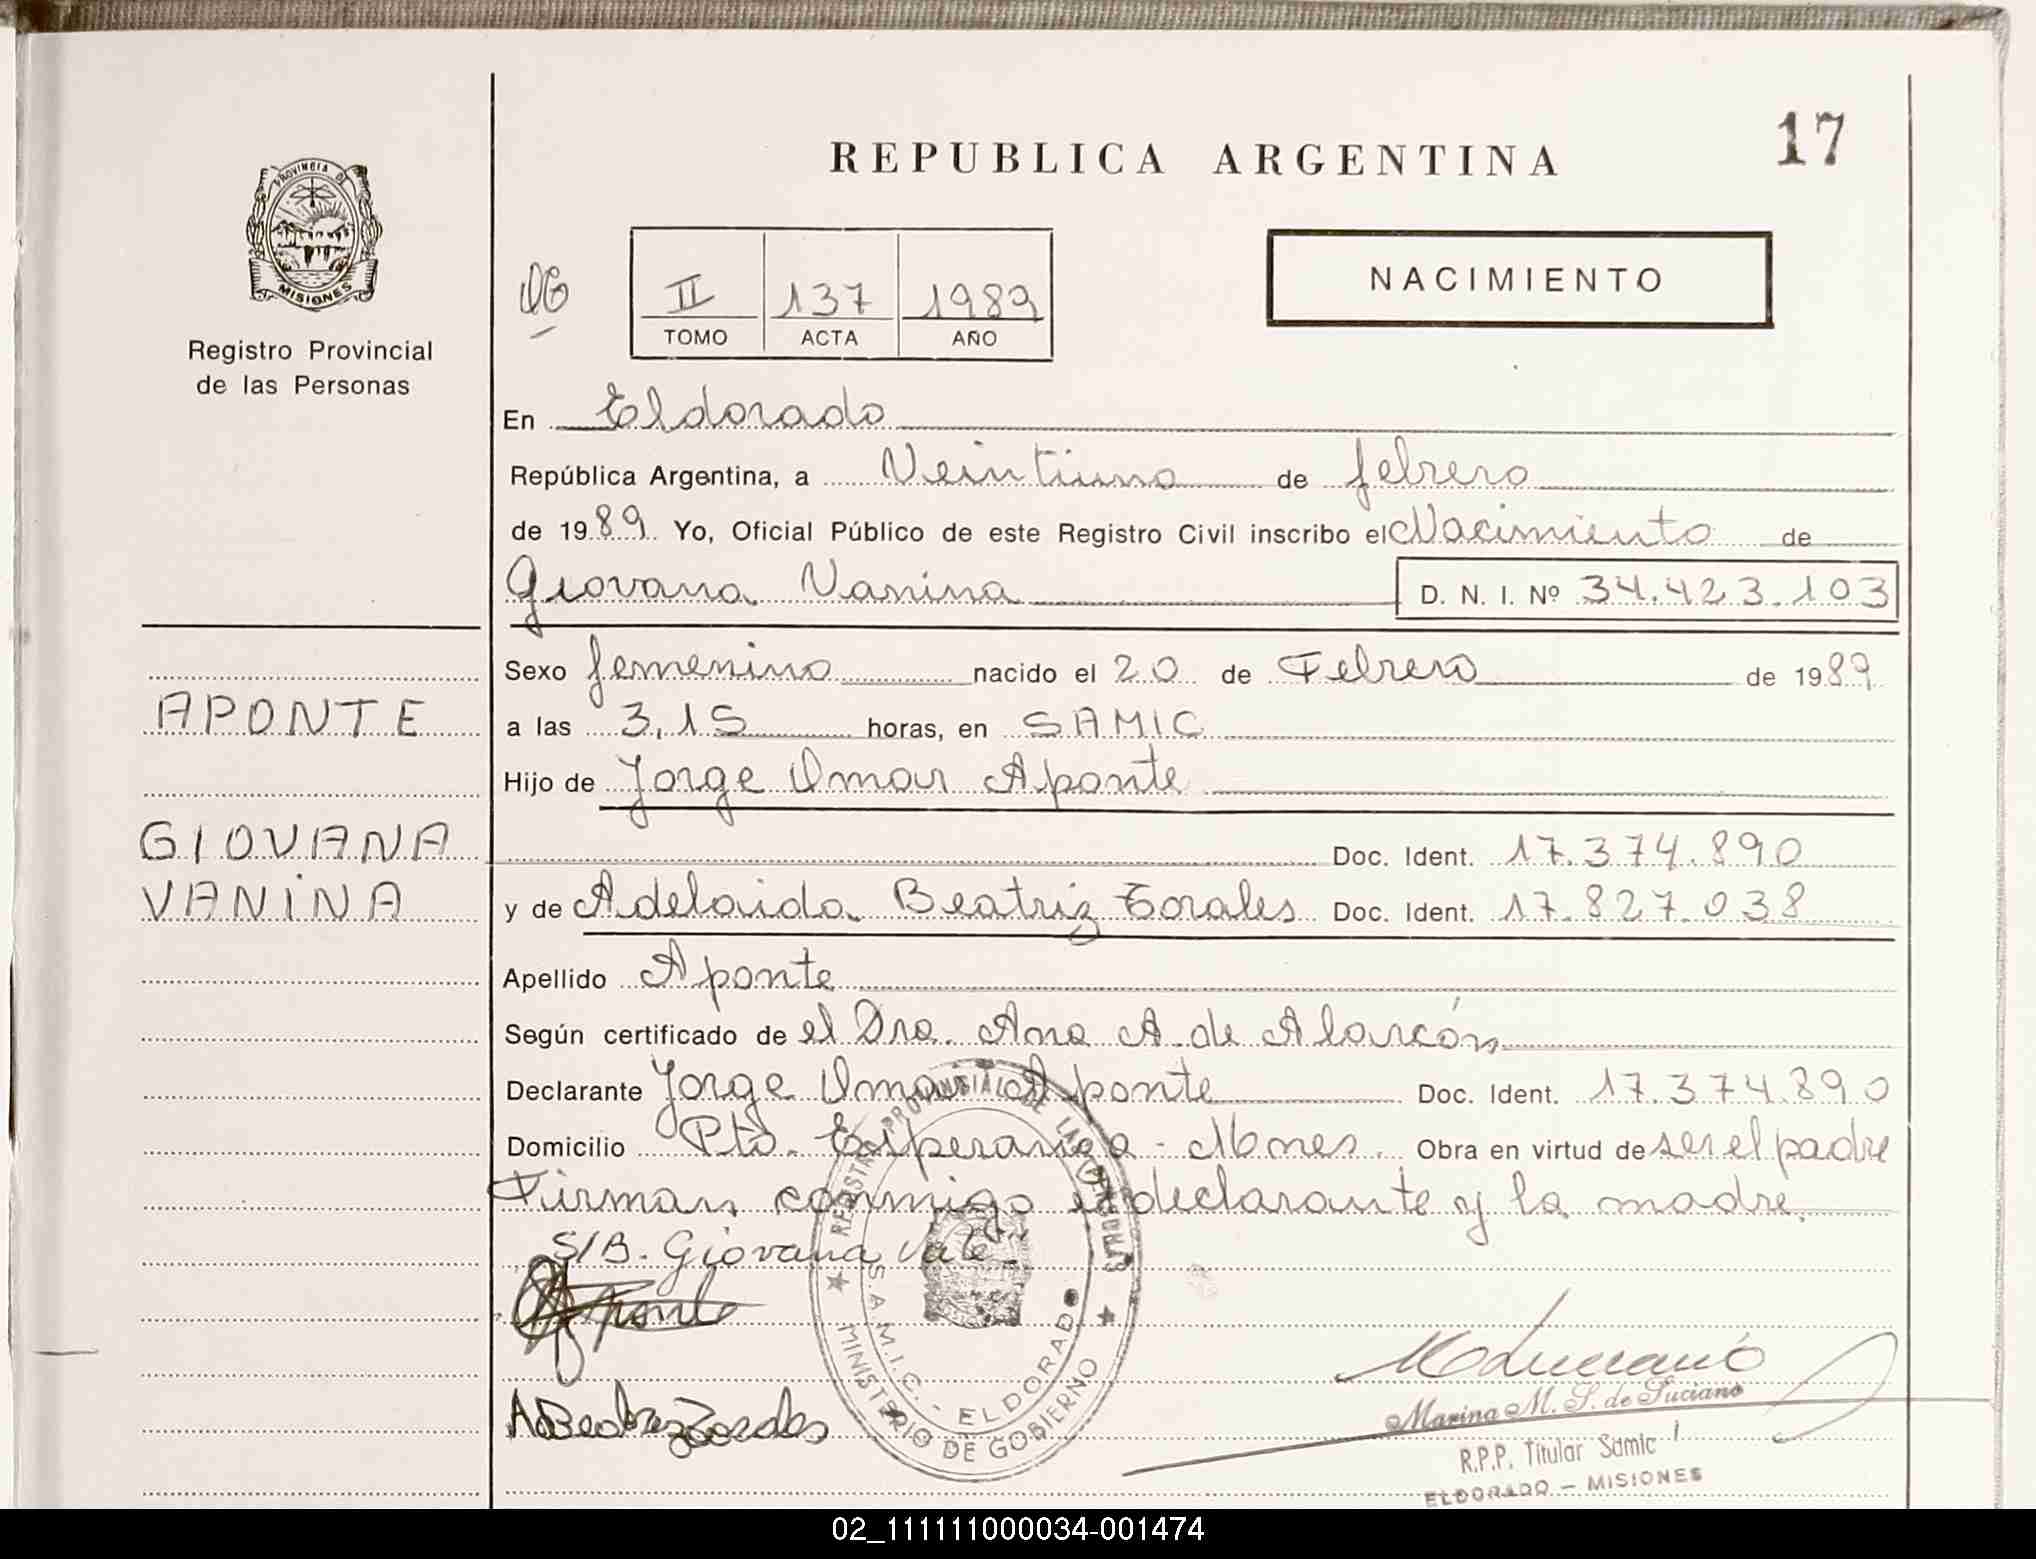 REPUBLICA ARGENTINA
17
PROVINCIA DE
MISIONES
Registro Provincial
de las Personas
II 137 1989
TOMO ACTA AÑO
NACIMIENTO
En Eldorado
República Argentina, a Veintiuno de febrero
de 1989 Yo, Oficial Público de este Registro Civil inscribo el Nacimiento de
Giovana Vanina D. N. I. Nº 34.423.103
Sexo femenino nacido el 20 de Febrero de 1989
APONTE
a las 3,15 horas, en SAMIC
Hijo de Jorge Omar Aponte
GIOVANA
Doc. Ident. 17.374.890
VANINA
y de Adelaida Beatriz Torales Doc. Ident. 17.827.038
Apellido Aponte
Según certificado de el Dra. Ana A. de Alarcón
Declarante Jorge Omar Aponte Doc. Ident. 17.374.890
Domicilio Pto. Esperanza - Mnes. Obra en virtud de ser el padre
Firman conmigo el declarante y la madre.
S/B. Giovana Vale
Aponte
REGISTRO PROVINCIAL DE LAS PERSONAS
S.A.M.I.C. - ELDORADO
MINISTERIO DE GOBIERNO
A Beatriz Torales
Marina M. S. de Luciano
R.P.P. Titular Samic
ELDORADO - MISIONES
02_111111000034-001474